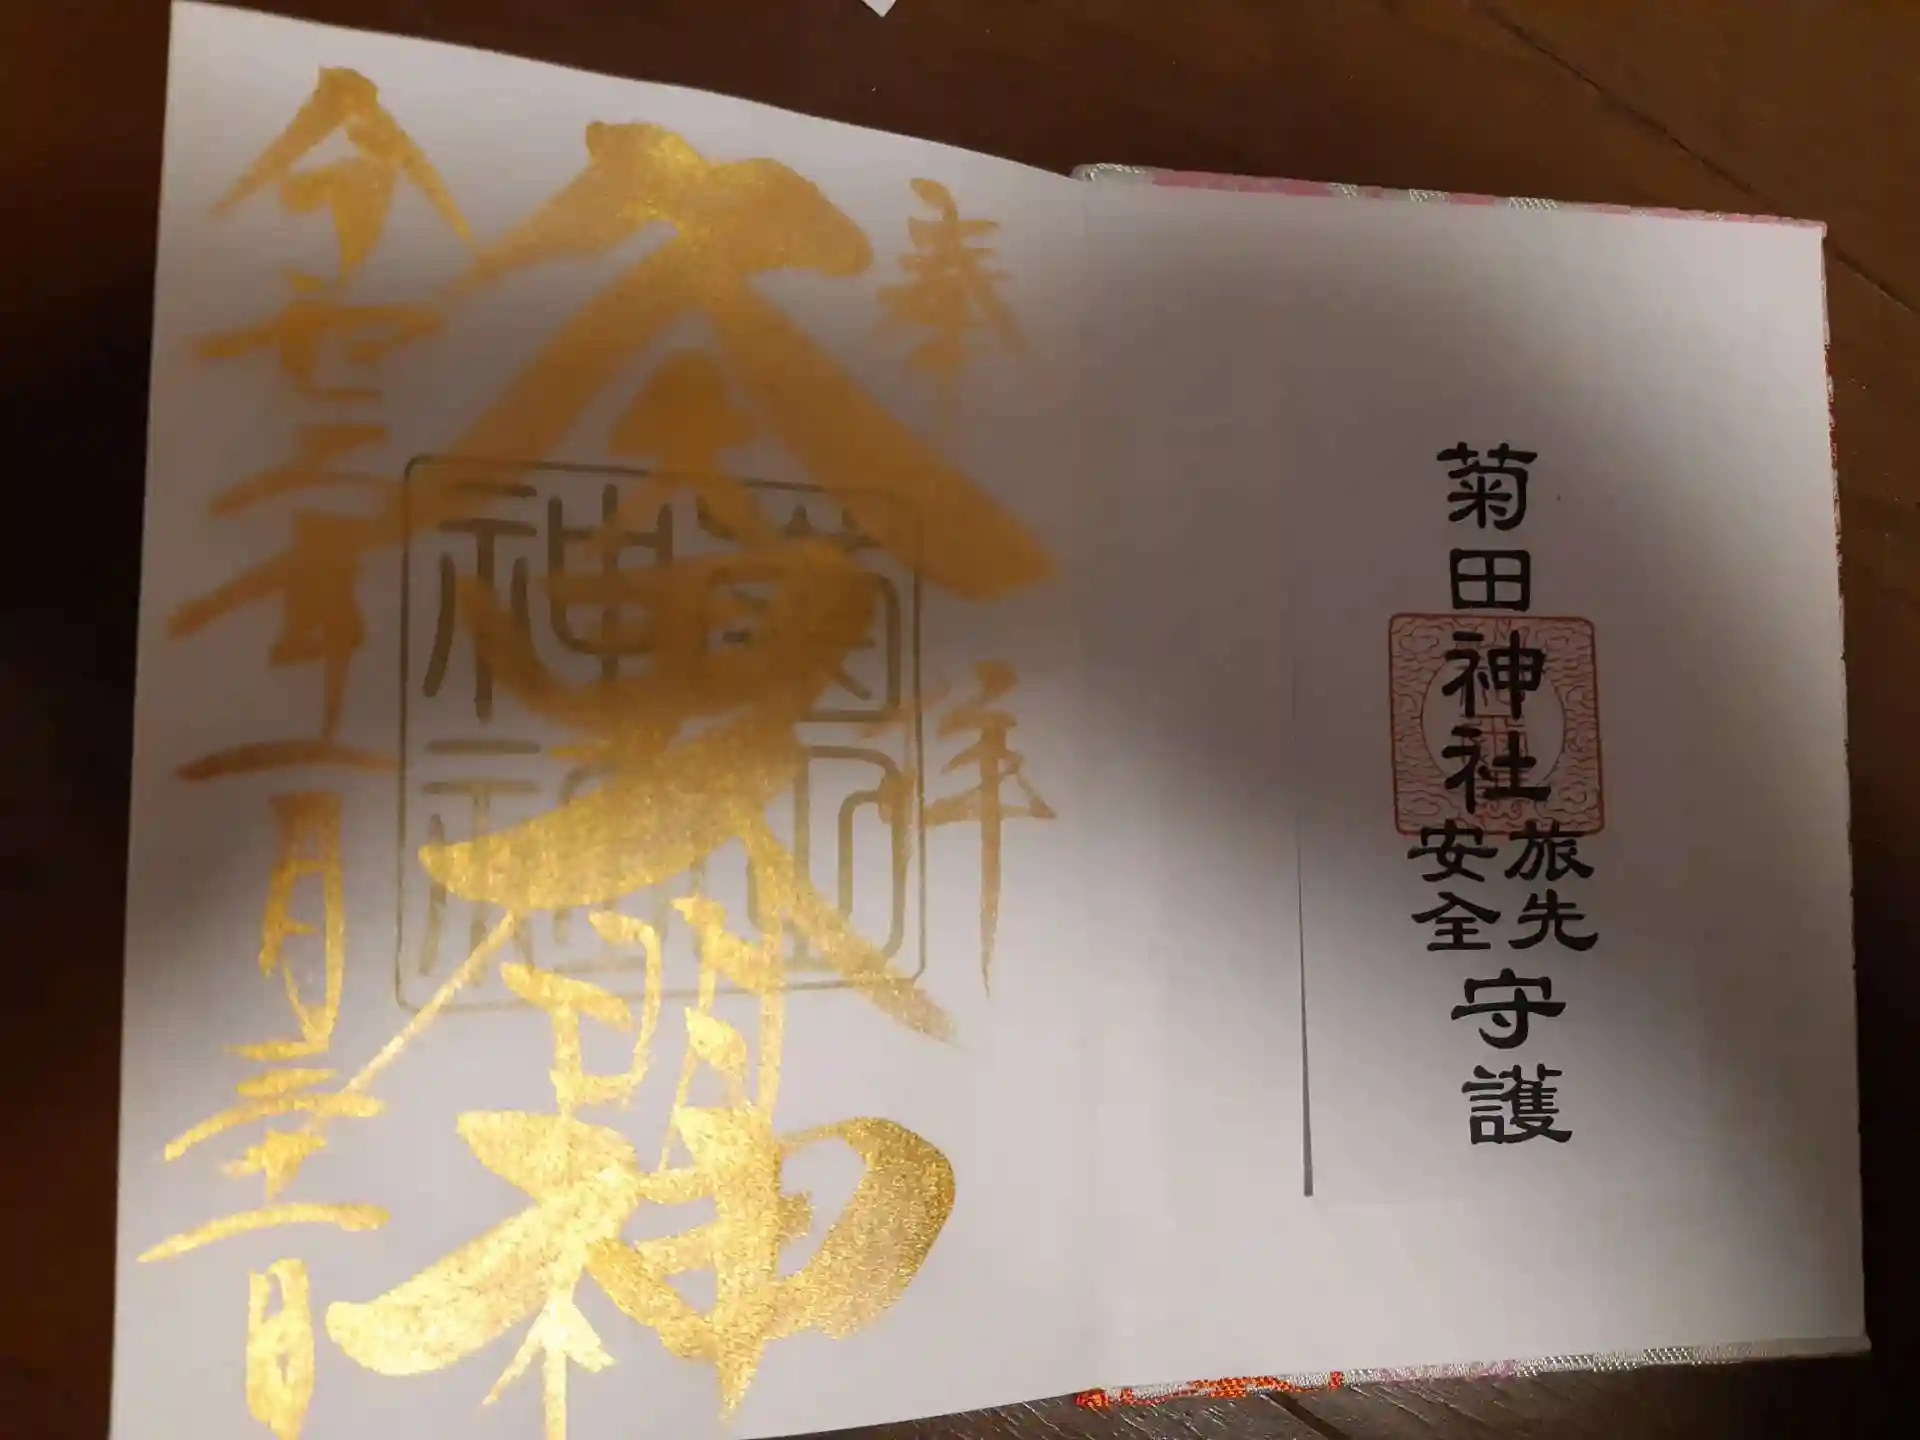 菊田神社
旅先
安全
守護
奉拝
久々田大明神
菊田
神社
令和三年一月三十一日